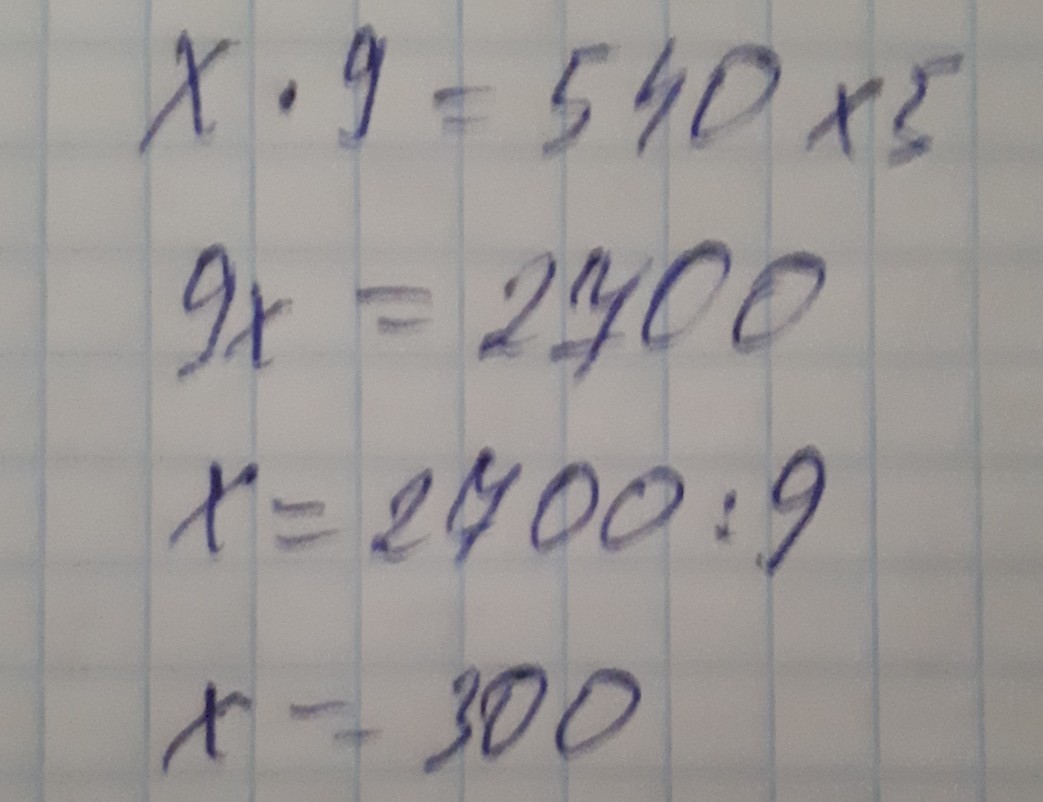 x · 9 = 540 x 5
9x = 2700
x = 2700 : 9
x = 300